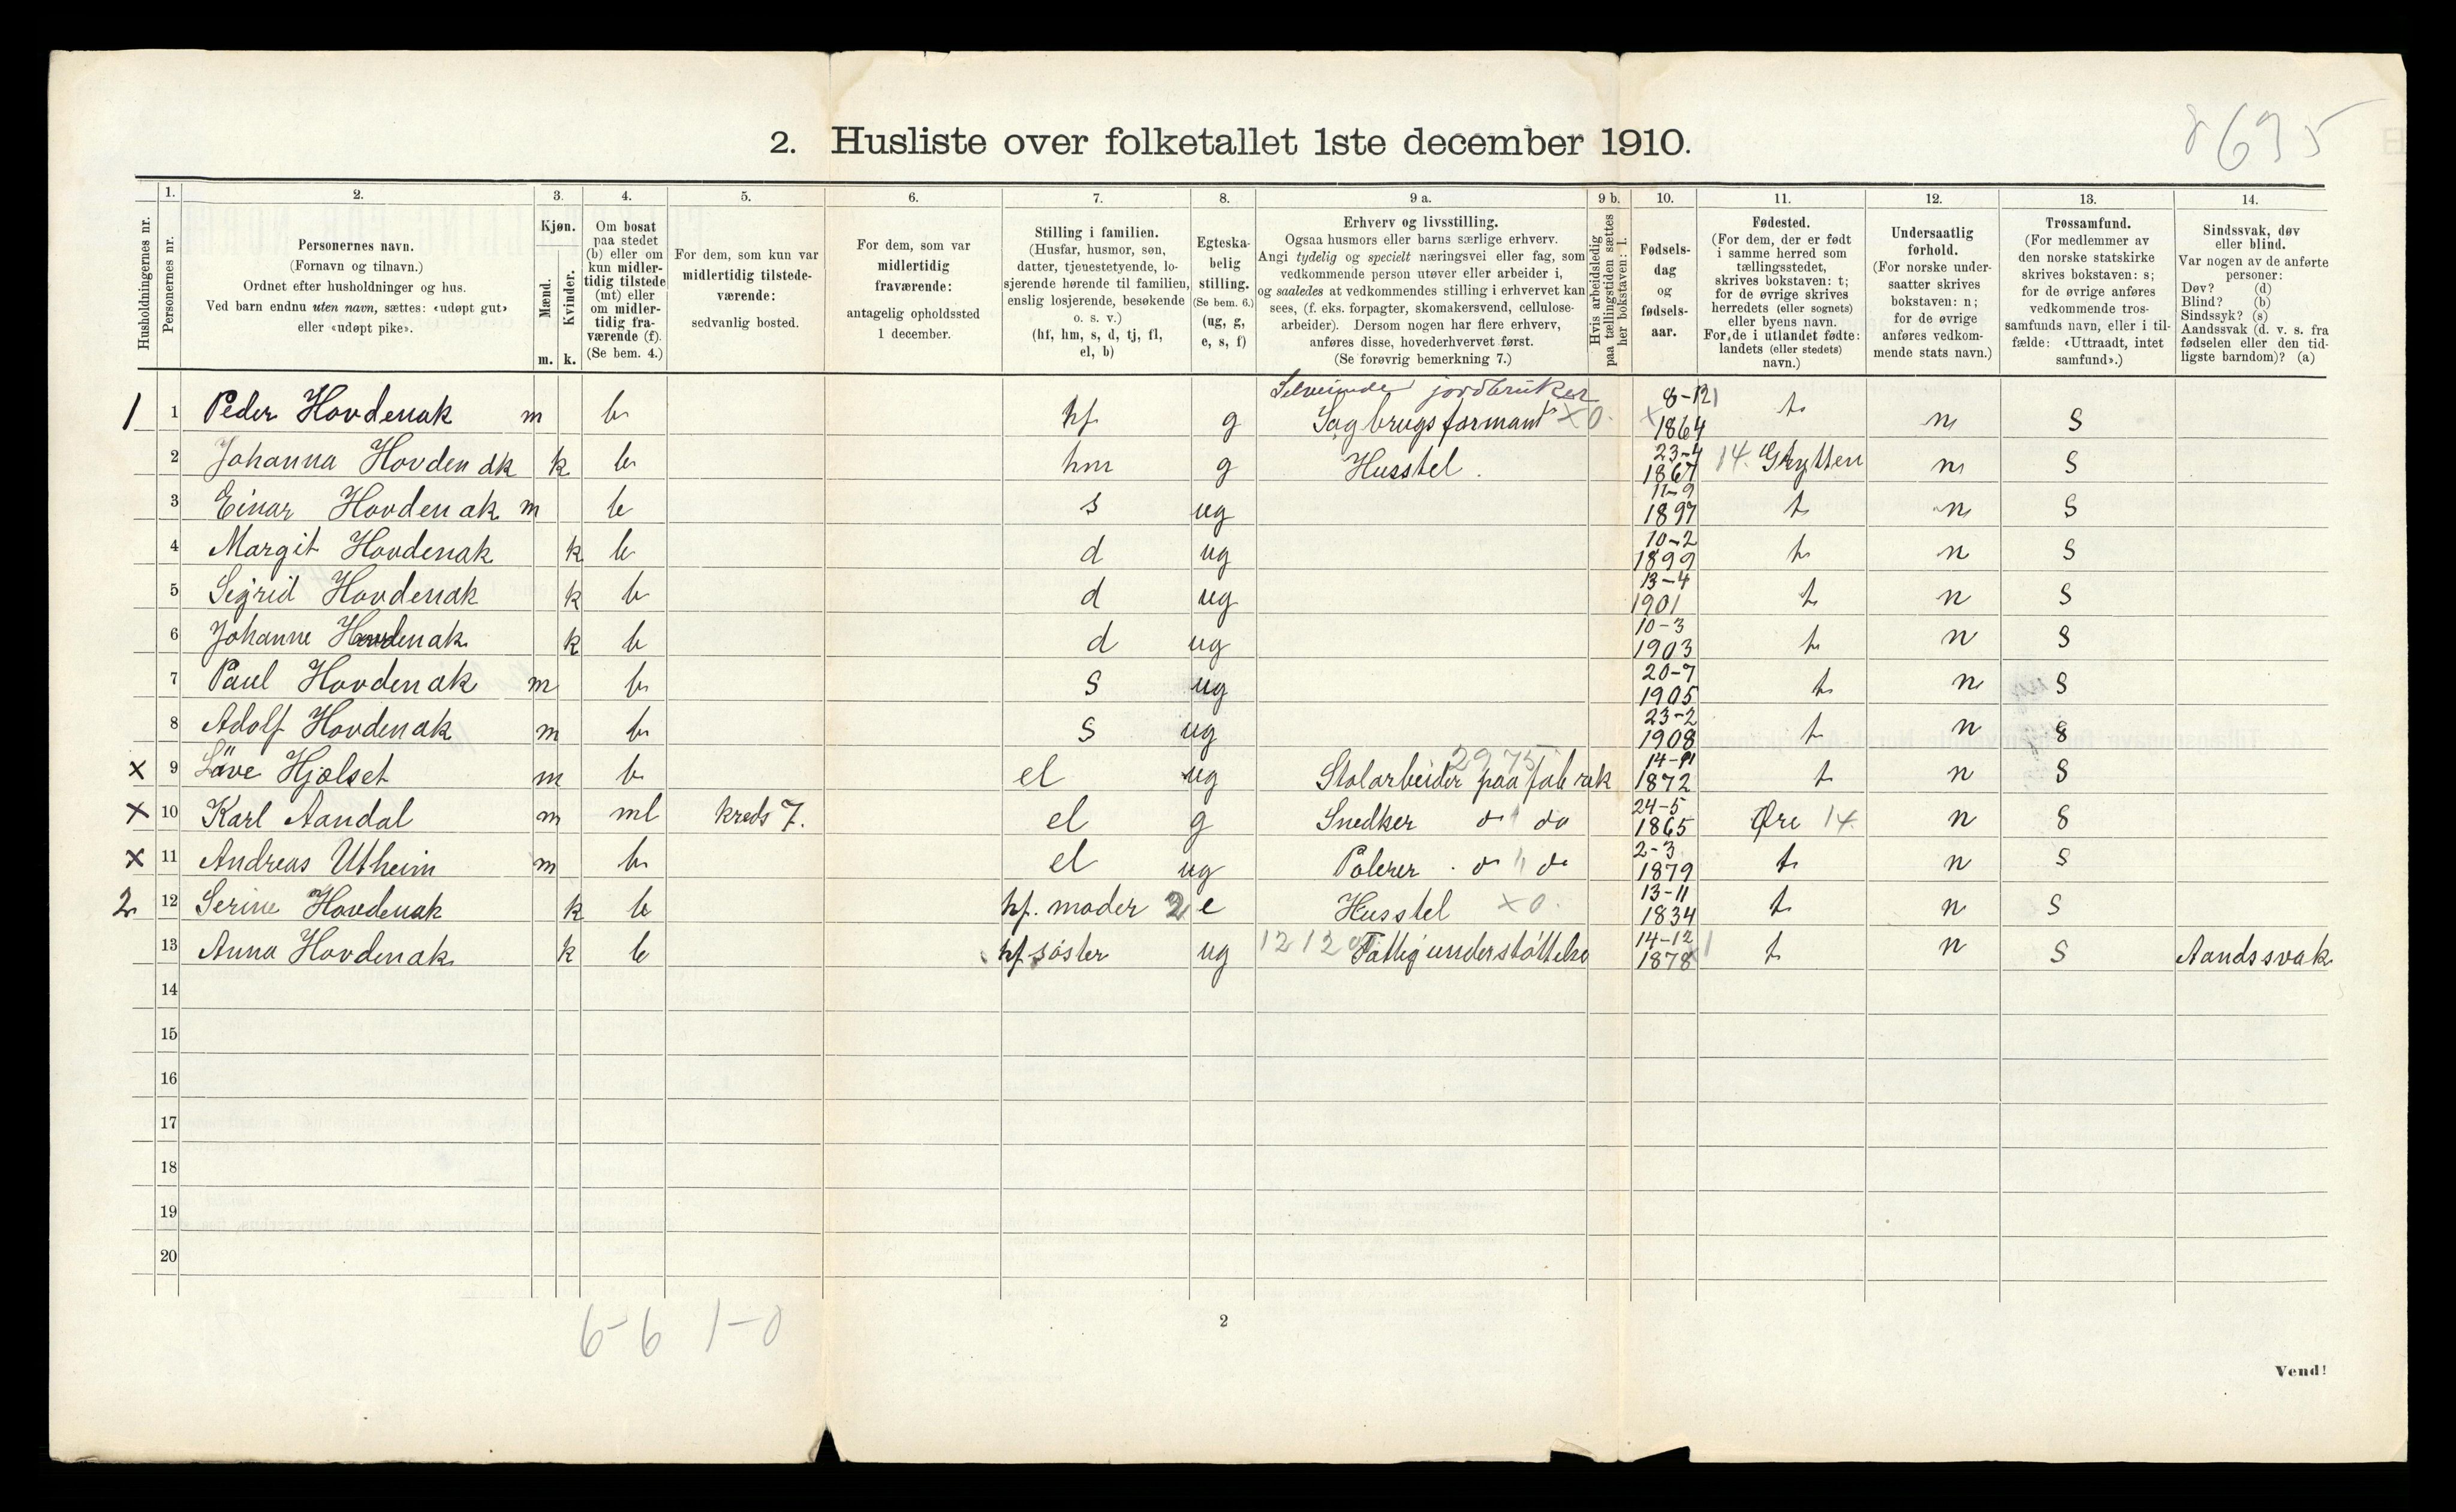 8635
2. Husliste over folketallet 1ste december 1910.
Husholdningernes nr.
1.
Personernes nr.
2.
Personernes navn.
(Fornavn og tilnavn.)
Ordnet efter husholdninger og hus.
Ved barn endnu uten navn, sættes: «udøpt gut»
eller «udøpt pike».
3.
Kjøn.
Mænd.
Kvinder.
m. k.
4.
Om bosat
paa stedet
(b) eller om
kun midler-
tidig tilstede
(mt) eller
om midler-
tidig fra-
værende (f).
(Se bem. 4.)
5.
For dem, som kun var
midlertidig tilstede-
værende:
sedvanlig bosted.
6.
For dem, som var
midlertidig
fraværende:
antagelig opholdssted
1 december.
7.
Stilling i familien.
(Husfar, husmor, søn,
datter, tjenestetyende, lo-
sjerende hørende til familien,
enslig losjerende, besøkende
o. s. v.)
(hf, hm, s, d, tj, fl,
el, b)
8.
Egteska-
belig
stilling.
(Se bem. 6.)
(ug, g,
e, s, f)
9 a.
Erhverv og livsstilling.
Ogsaa husmors eller barns særlige erhverv.
Angi tydelig og specielt næringsvei eller fag, som
vedkommende person utøver eller arbeider i,
og saaledes at vedkommendes stilling i erhvervet kan
sees, (f. eks. forpagter, skomakersvend, cellulose-
arbeider). Dersom nogen har flere erhverv,
anføres disse, hovederhvervet først.
(Se forøvrig bemerkning 7.)
9 b.
Hvis arbeidsledig
paa tællingstiden sættes
her bokstaven: l.
10.
Fødsels-
dag
og
fødsels-
aar.
11.
Fødested.
(For dem, der er født
i samme herred som
tællingsstedet,
skrives bokstaven: t;
for de øvrige skrives
herredets (eller sognets)
eller byens navn.
For de i utlandet fødte:
landets (eller stedets)
navn.)
12.
Undersaatlig
forhold.
(For norske under-
saatter skrives
bokstaven: n;
for de øvrige
anføres vedkom-
mende stats navn.)
13.
Trossamfund.
(For medlemmer av
den norske statskirke
skrives bokstaven: s;
for de øvrige anføres
vedkommende tros-
samfunds navn, eller i til-
fælde: «Uttraadt, intet
samfund».)
14.
Sindssvak, døv
eller blind.
Var nogen av de anførte
personer:
Døv? (d)
Blind? (b)
Sindssyk? (s)
Aandssvak (d. v. s. fra
fødselen eller den tid-
ligste barndom)? (a)
Selveiende jordbruker
1 1 Peder Hovdenak m b hf g Sagbrugsformand X 0. 8-12 1864 t n s
2 Johanna Hovdenak k b hm g Husstel. 23-4 1867 14. Grytten n s
3 Einar Hovdenak m b s ug 11-9 1897 t n s
4 Margit Hovdenak k b d ug 10-2 1899 t n s
5 Sigrid Hovdenak k b d ug 13-4 1901 t n s
6 Johanne Hovdenak k b d ug 10-3 1903 t n s
7 Paul Hovdenak m b s ug 20-7 1905 t n s
8 Adolf Hovdenak m b s ug 23-2 1908 t n s
2975
x 9 Hjelset m b el ug Stolarbeider paa fabrak 14-11 1872 t n s
x 10 Karl Aandal m mt kreds 7. el g Snedker do 24-5 1865 Øre 14 n s
x 11 Andreas Utheim m b el ug Polerer do 2-3 1879 t n s
2 12 Serine Hovdenak k b hf. moder 2 e Husstel X 0. 13-11 1834 t n s
13 Anna Hovdenak k b hf søster ug 1212 Fattigunderstøttelse 14-12 1878 t n s Aandssvak
14
15
16
17
18
19
20
6-6 1-0
2
Vend!